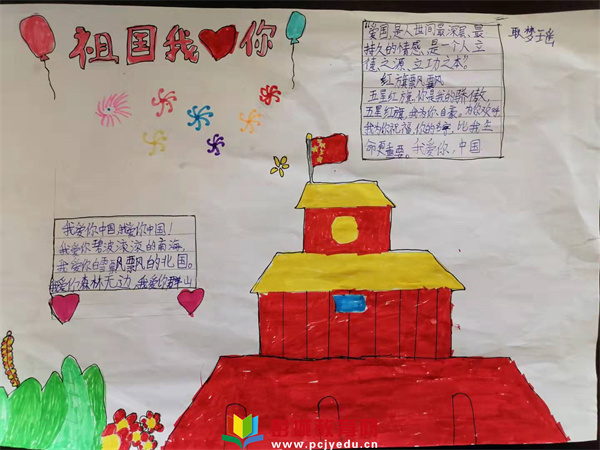 祖国我❤你
"爱国,是人世间最深层、最
持久的情感,是一个人立
德之源、立功之本。"
红旗飘飘
五星红旗,你是我的骄傲,
五星红旗,我为你自豪,为你欢呼
我为你祝福,你的名字,比我生
命更重要。我爱你,中国
我爱你中国,我爱你中国!
我爱你碧波滚滚的南海,
我爱你白雪飘飘的北国。
我爱你森林无边,我爱你群山
www.pcjyedu.cn